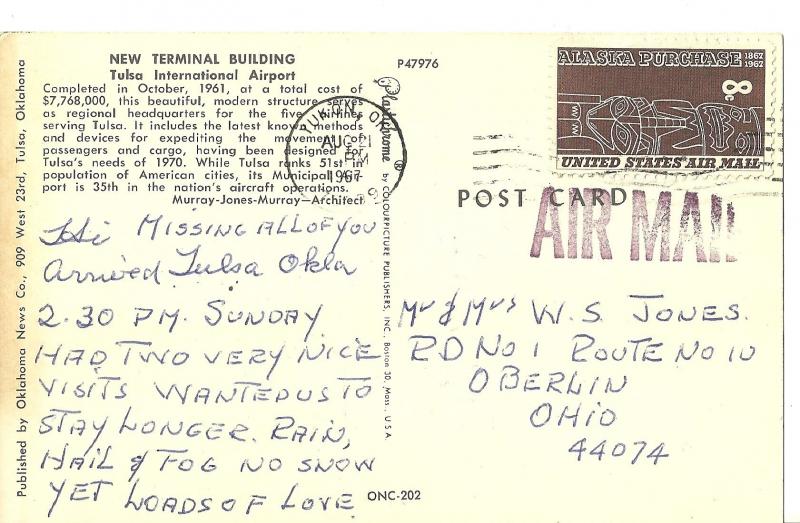 NEW TERMINAL BUILDING
Tulsa International Airport
Completed in October, 1961, at a total cost of
$7,768,000, this beautiful, modern structure serves
as regional headquarters for the five airlines
serving Tulsa. It includes the latest known methods
and devices for expediting the movement of
passengers and cargo, having been designed for
Tulsa's needs of 1970. While Tulsa ranks 51st in
population of American cities, its Municipal Air-
port is 35th in the nation's aircraft operations.
Murray-Jones-Murray—Architect
P47976
Published by Oklahoma News Co., 909 West 23rd, Tulsa, Oklahoma
Plastichrome ®
by COLOURPICTURE PUBLISHERS, INC., Boston 30, Mass., U.S.A.
AUG 21
PM
1967
ALASKA PURCHASE 1867
1967
8c
UNITED STATES AIR MAIL
POST CARD
AIR MAIL
Hi MISSING ALL OF YOU
Arrived Tulsa Okla
2.30 PM. SUNDAY
HAD TWO VERY NICE
VISITS WANTED US TO
STAY LONGER. RAIN,
HAIL & FOG NO SNOW
YET LOADS OF LOVE
Mr & Mrs W.S. JONES.
RD NO 1 ROUTE NO 10
OBERLIN
OHIO
44074
ONC-202